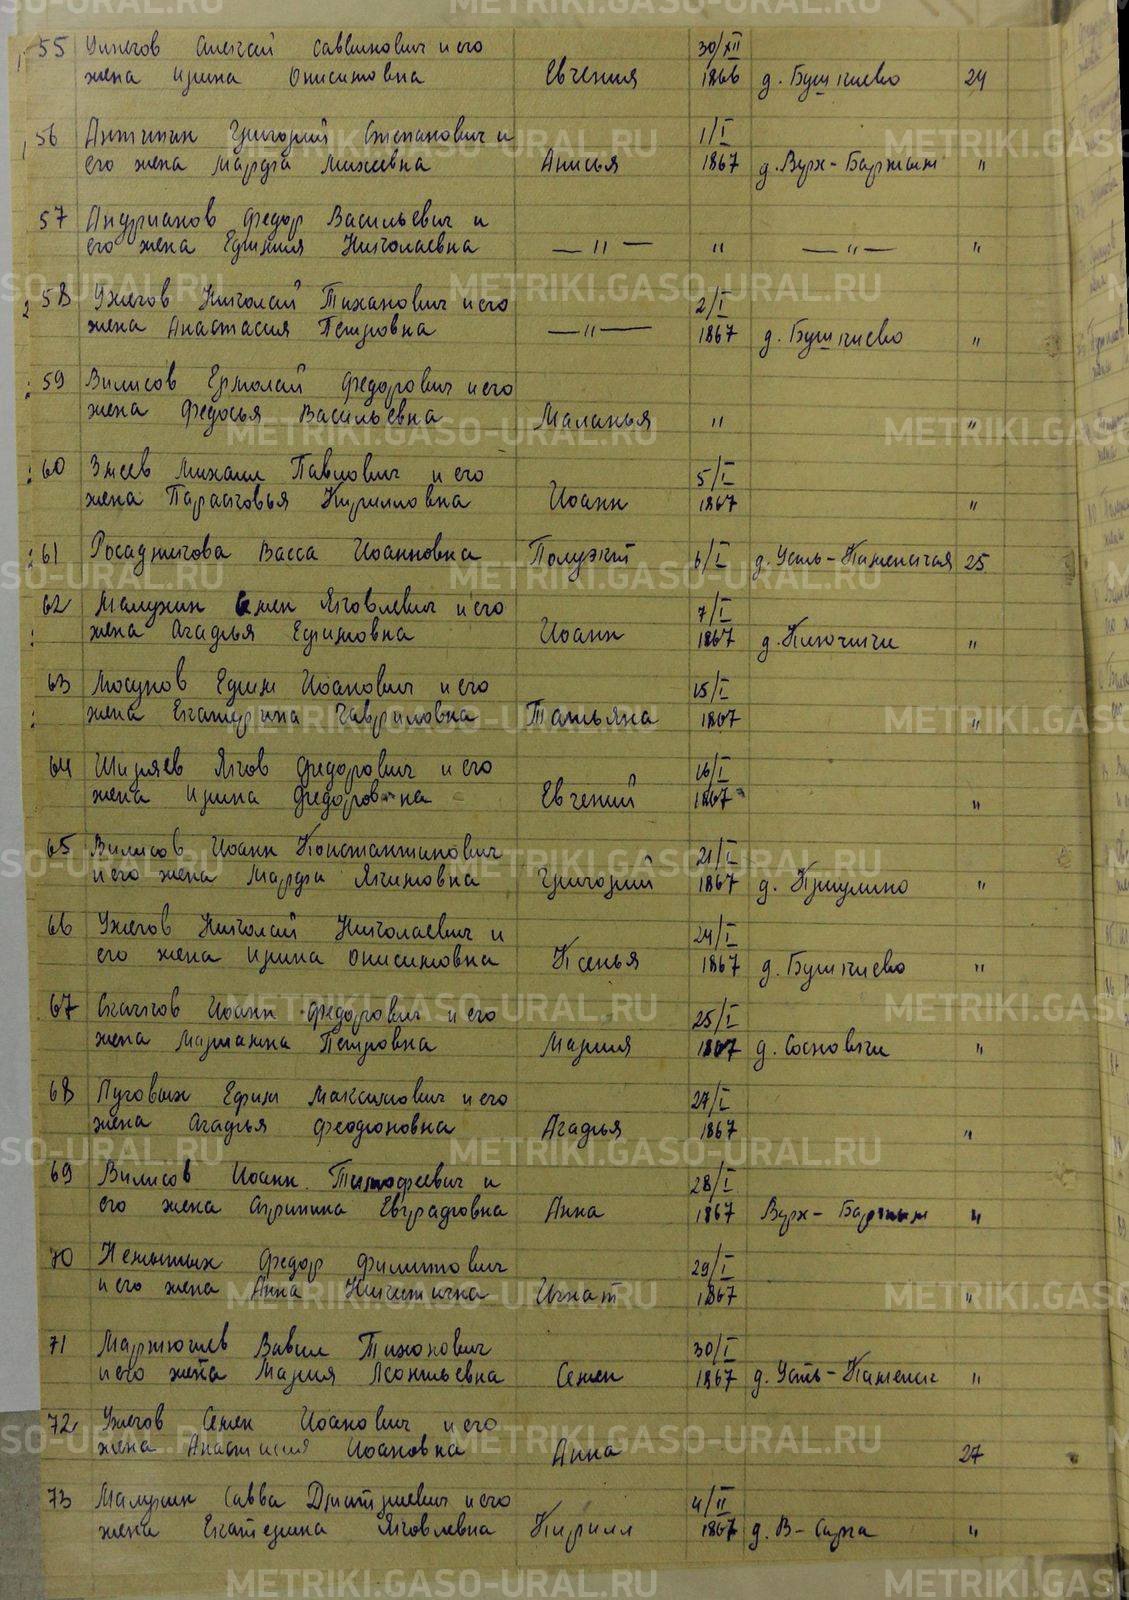 55 Ужегов Алексей Саввинович и его 30/XII
жена Ирина Онисимовна Евгения 1866 д. Бушкиево 24
56 Антипин Григорий Степанович и 1/I
его жена Марфа Михеевна Анисья 1867 д. Верх-Бартым "
57 Андрианов Федор Васильевич и
его жена Ефимия Николаевна —"— " —"— "
58 Ужегов Николай Тиханович и его 2/I
жена Анастасия Петровна —"— 1867 д. Бушкиево "
59 Вилисов Ермолай Федорович и его
жена Федосья Васильевна Маланья " "
60 Змеев Михаил Павлович и его 5/I
жена Парасковья Кирилловна Иоанн 1867 "
61 Росадникова Васса Иоанновна Полуэкт 6/I д. Усть-Каменская 25
62 Малухин Семен Яковлевич и его 7/I
жена Агафья Ефимовна Иоанн 1867 д. Ключики "
63 Мосунов Ефим Иоанович и его 15/I
жена Екатерина Гавриловна Татьяна 1867 "
64 Ширяев Яков Федорович и его 16/I
жена Ирина Федоровна Евгений 1867 "
65 Вилисов Иоанн Константинович 21/I
и его жена Марфа Якимовна Григорий 1867 д. Криулино "
66 Ужегов Николай Николаевич и 24/I
его жена Ирина Онисимовна Ксенья 1867 д. Бушкиево "
67 Скачков Иоанн Федорович и его 25/I
жена Марианна Петровна Мария 1867 д. Сосновки "
68 Пуговых Ефим Максимович и его 27/I
жена Агафья Феофоновна Агафья 1867 "
69 Вилисов Иоанн Тимофеевич и 28/I
его жена Агрипина Евграфовна Анна 1867 Верх-Бартым "
70 Федор Филиппович 29/I
и его жена Анна Никитична Игнат 1867 "
71 Мартюгиев Вавил Тихонович 30/I
и его жена Мария Леонтьевна Семен 1867 д. Усть-Каменск "
72 Ужегов Семен Иоанович и его
жена Анастасия Иоановна Анна 27
73 Малухин Савва Дмитриевич и его 4/II
жена Екатерина Яковлевна Кирилл 1867 д. В-Сарга "
METRIKI.GASO-URAL.RU